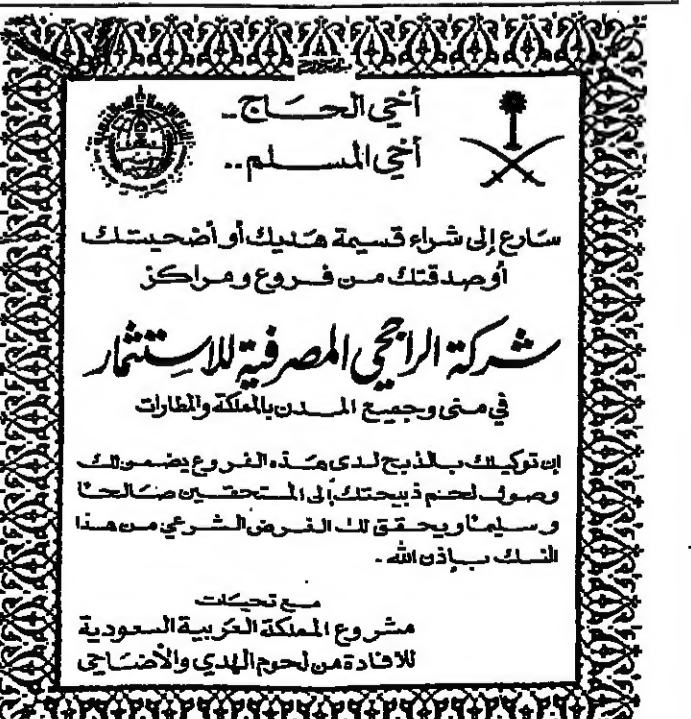 أخي الحاج..
أخي المسلم..
سارع إلى شراء قسيمة هديك أو أضحيتك
أو صدقتك من فروع ومراكز
شركة الراجحي المصرفية للاستثمار
في منى وجميع المدن بالمملكة والمطارات
إن توكيلك بالذبح لدى هذه الفروع يضمن لك
وصول لحم ذبيحتك إلى المستحقين صالحاً
وسليماً ويحقق لك الغرض الشرعي من هذا
النسك بإذن الله .
مع تحيات
مشروع المملكة العربية السعودية
للافادة من لحوم الهدي والأضاحي